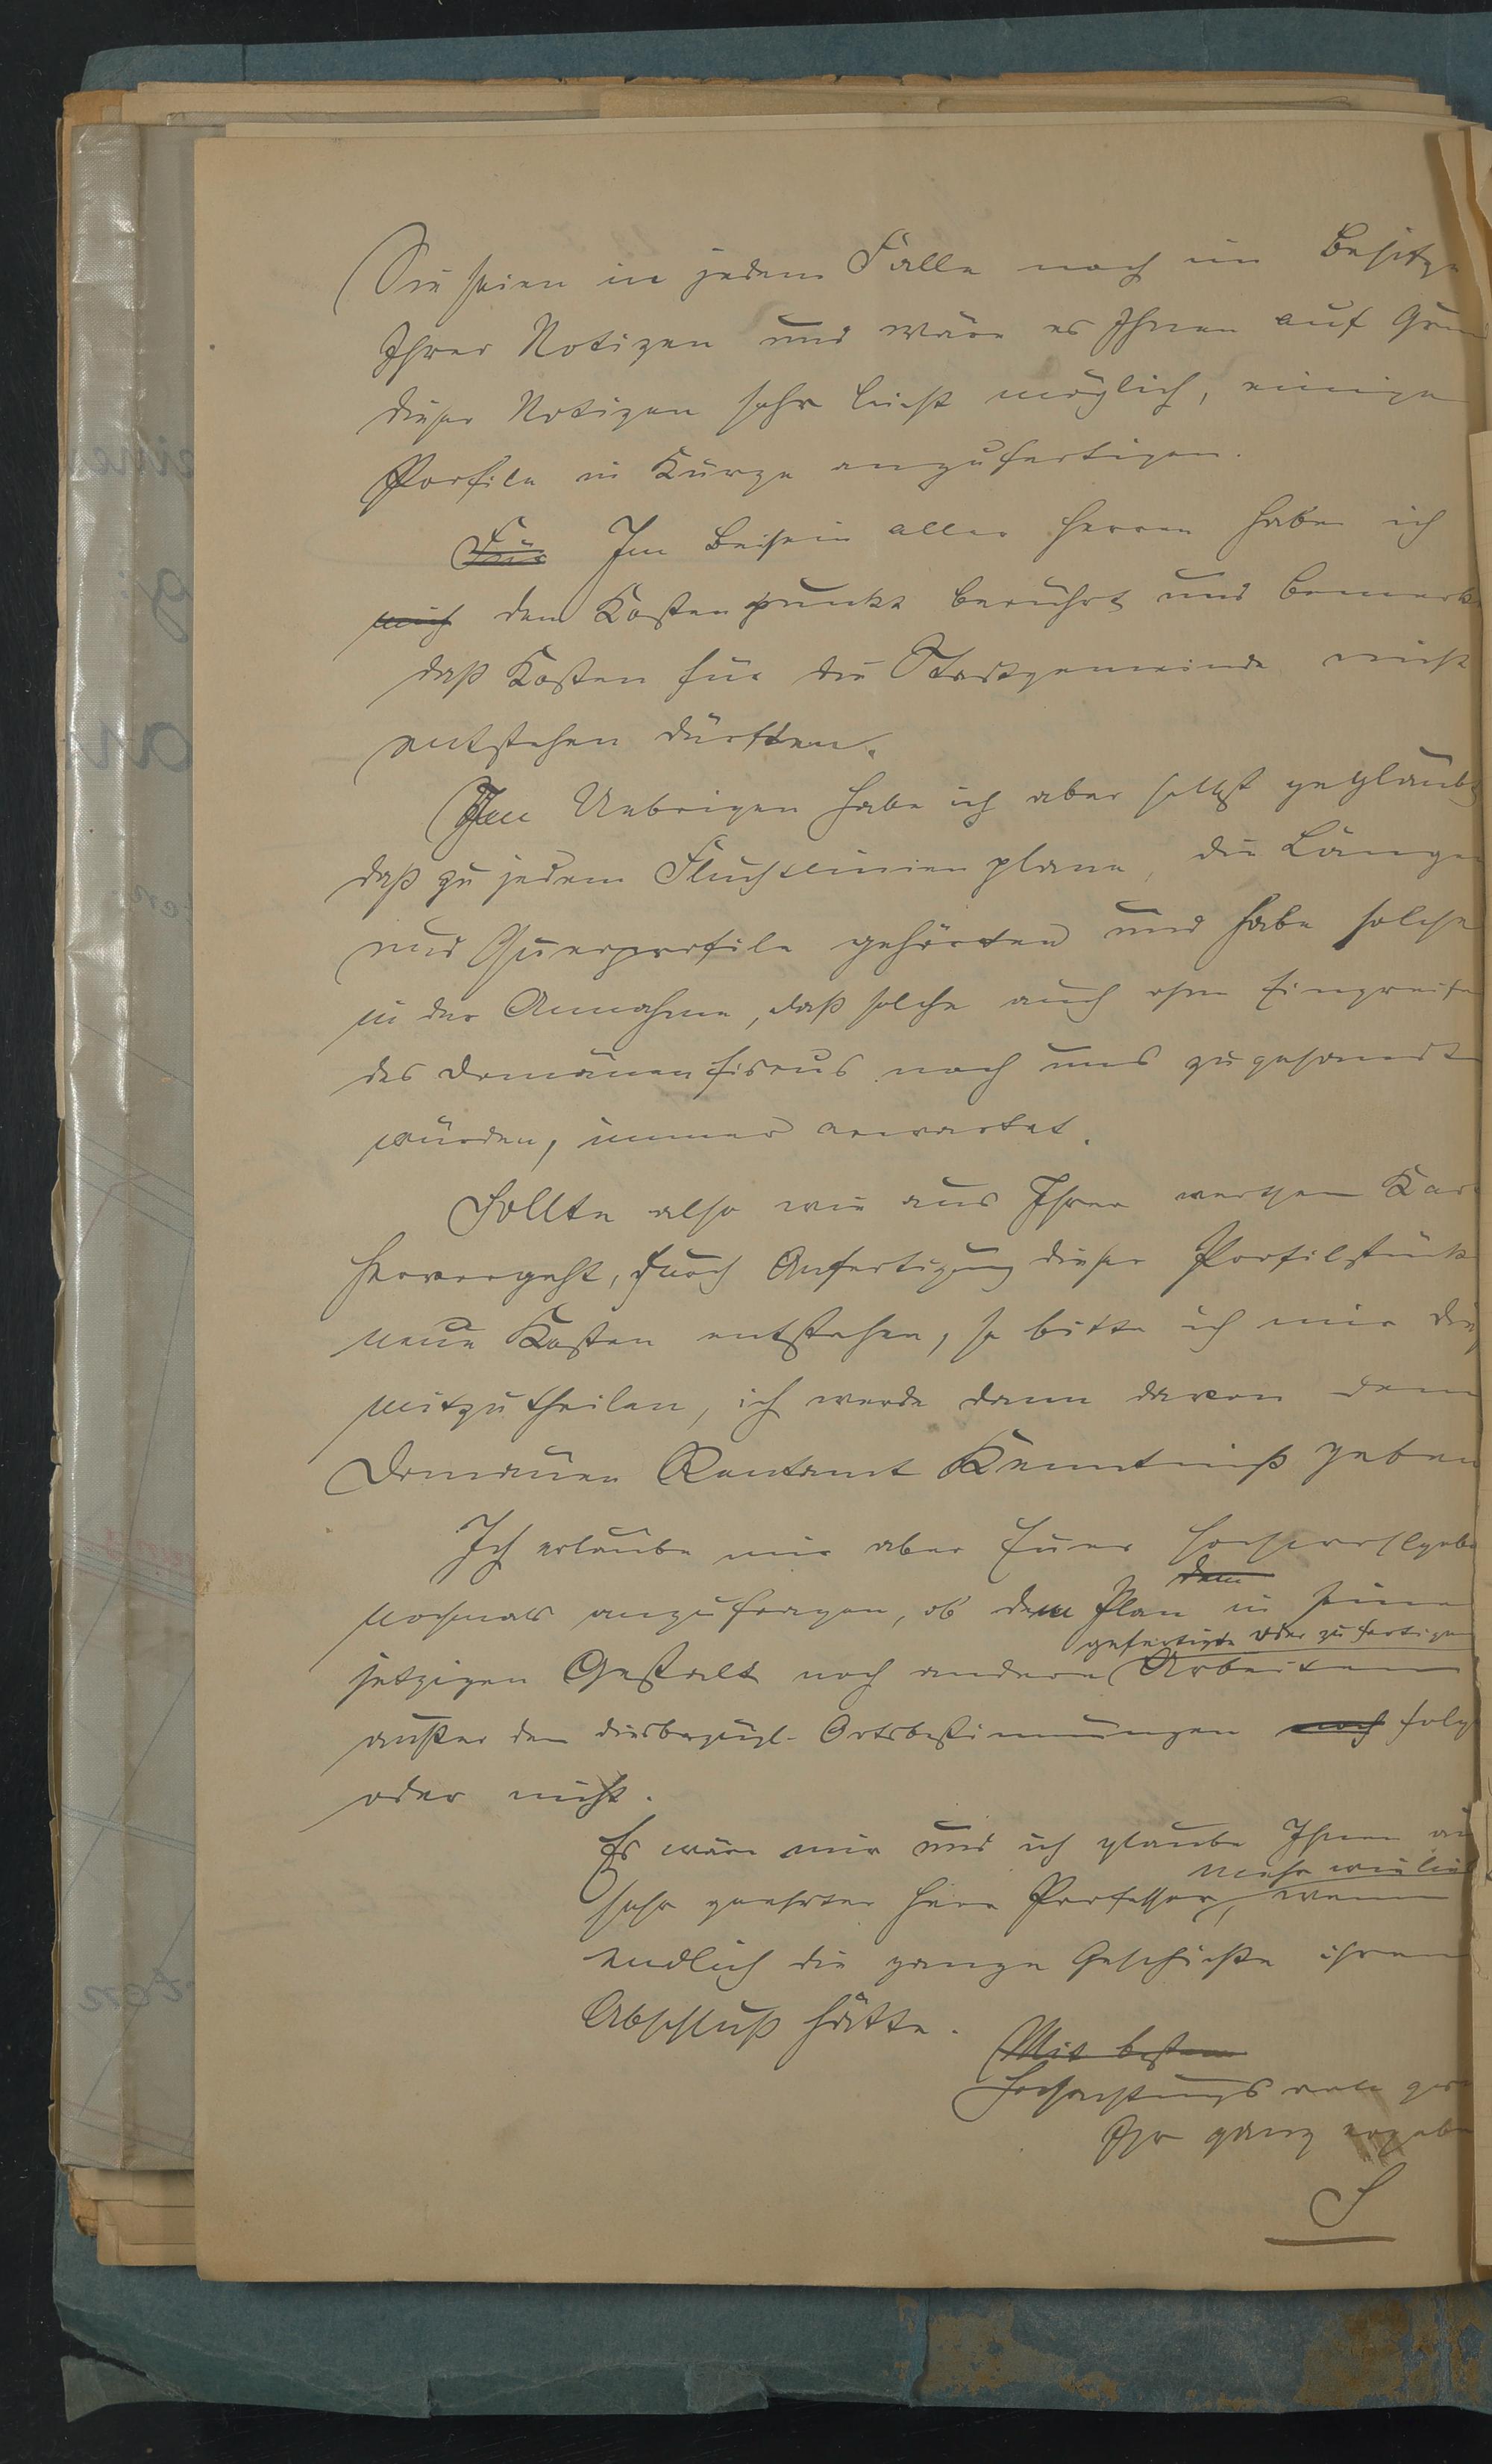 Sie seien in jedem Falle noch im Besitze
Ihrer Notizen und wäre es Ihnen auf Grund
dieser Notizen sehr leicht möglich, einige
Profile in Kürze anzufertigen.
Für Im Beisein aller Herren habe ich
mich den Kostenpunkt berührt und bemerkt
daß Kosten für die Stadtgemeinde nicht
entstehen dürften.
Im Uebrigen habe ich aber selbst geglaubt
daß zu jedem Fluchtlinienplane, die Längen
und Querprofile gehörten und habe solche
in der Annahme, daß solche auch ohne Eingreifen
des Domänenfiscus noch uns zugesandt
würden, immer erwartet.
Sollte also wie aus Ihrer werthen Karte
hervorgeht, durch Anfertigung dieser Profilstücke
neue Kosten entstehen, so bitte ich mir dies
mitzutheilen, ich werde dann davon dem
Domänen Rentamt Kenntniß geben
Ich erlaube mir aber Euer Hochwohlgeb
nochmals anzufragen, ob dem Plan in seiner
dem
gefertigte oder zu fertigen
jetzigen Gestalt noch andere Arbeiten
außer den diesbezügl. Ortsbestimmungen noch folg
oder nicht.
Es wäre mir und ich glaube Ihnen au
mehr wie lieb
sehr geehrter Herr Professor, wenn
endlich die ganze Geschichte ihren
Abschluß hätte.
Mit bestem
Hochachtungsvoll
Ihr ganz ergeb
S